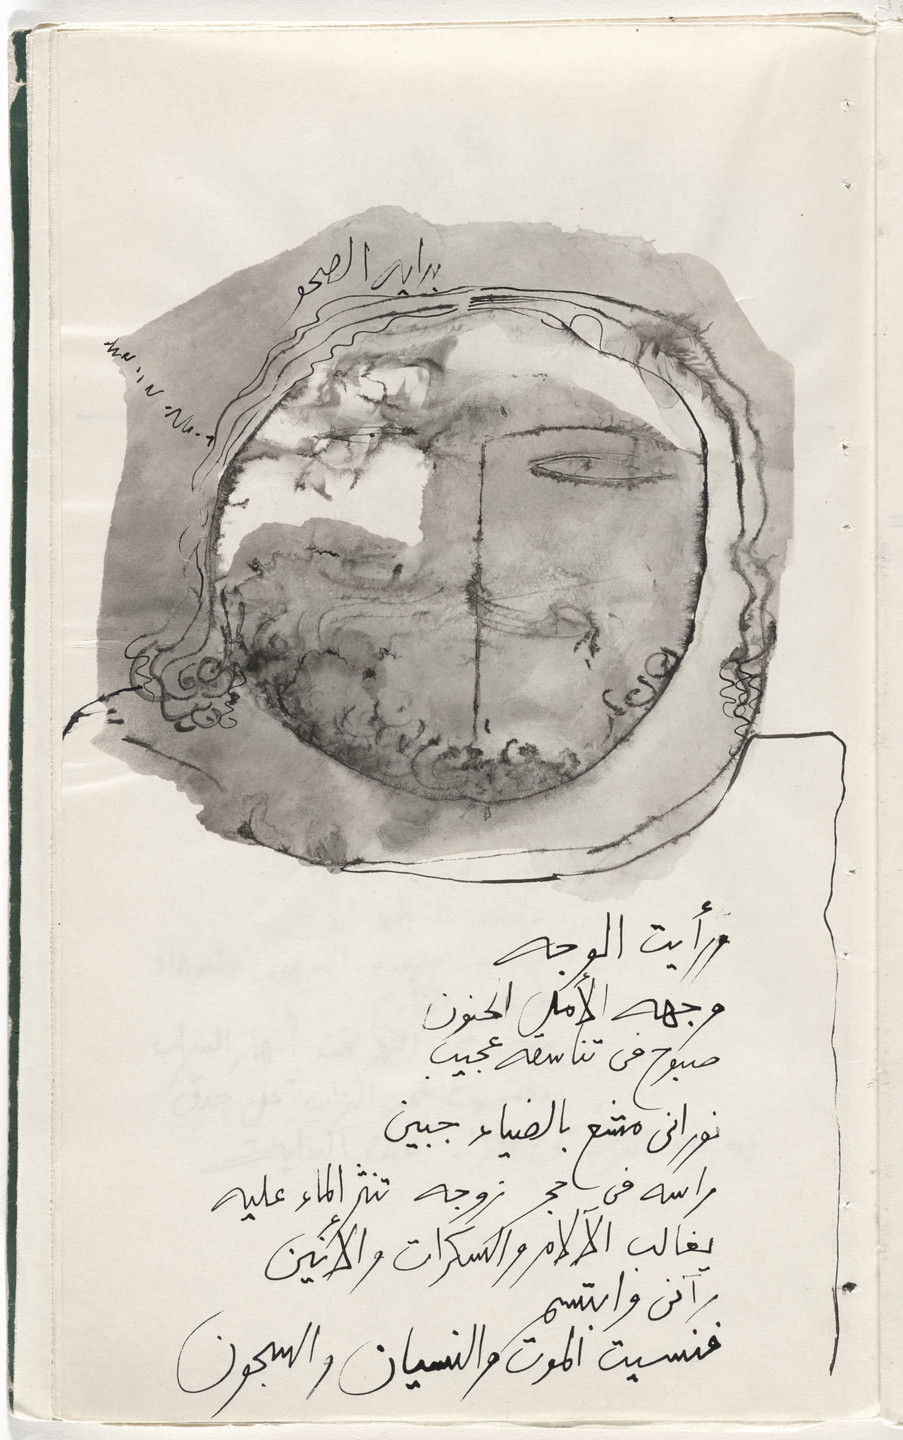 بداية الصحو
ورأيت الوجه
وجهه الأمثل الحنون
صبوح فى تناسقه عجيب
نورانى مشع بالضياء جبين
راسه فى حجر زوجه تنثر الماء عليه
يغالب الآلام والسكرات والأنين
رآنى وابتسم
فنسيت الموت والنسيان والسجون